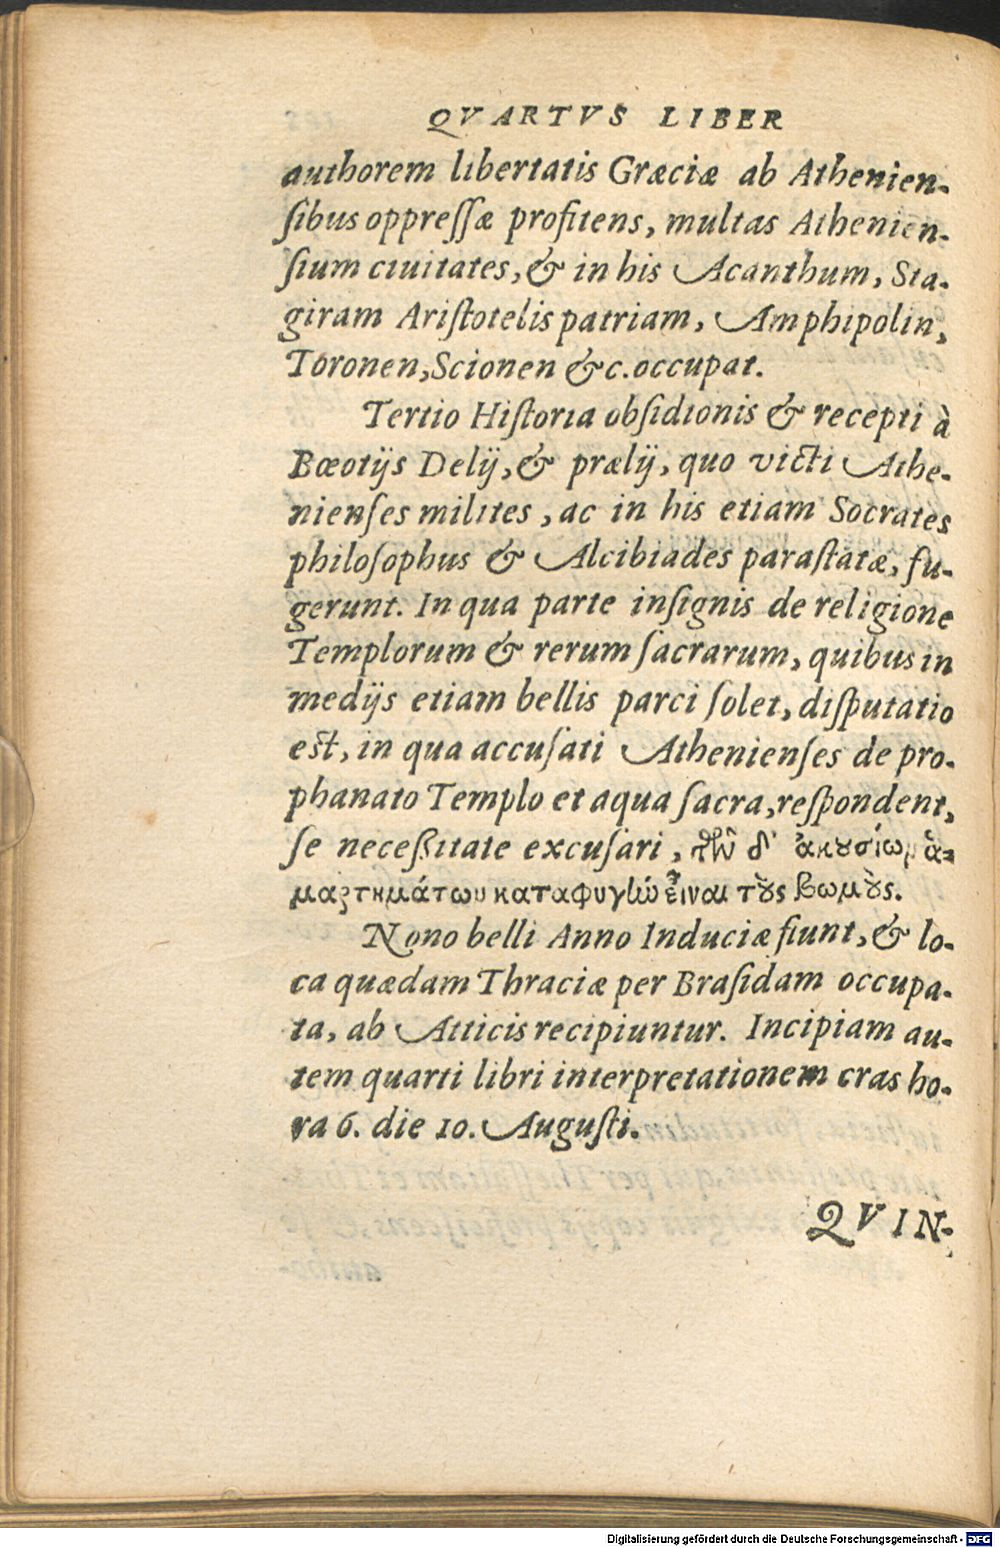 QVARTVS LIBER
authorem libertatis Græciæ ab Athenien-
ſibus oppreſſæ profitens, multas Athenien-
ſium ciuitates, & in his Acanthum, Sta-
giram Ariſtotelis patriam, Amphipolin,
Toronen, Scionen &c. occupat.
Tertio Hiſtoria obſidionis & recepti à
Bœotijs Delij, & prælij, quo victi Athe-
nienſes milites, ac in his etiam Socrates
philoſophus & Alcibiades paraſtatæ, fu-
gerunt. In qua parte inſignis de religione
Templorum & rerum ſacrarum, quibus in
medijs etiam bellis parci ſolet, diſputatio
eſt, in qua accuſati Athenienſes de pro-
phanato Templo et aqua ſacra, reſpondent,
ſe neceßitate excuſari, τῶν δ' ἀκουσίων ἁ-
μαρτημάτων καταφυγὴν εἶναι τοὺς βωμούς.
Nono belli Anno Induciæ fiunt, & lo-
ca quædam Thraciæ per Braſidam occupa-
ta, ab Atticis recipiuntur. Incipiam au-
tem quarti libri interpretationem cras ho-
ra 6. die 10. Auguſti.
QVIN-
Digitalisierung gefördert durch die Deutsche Forschungsgemeinschaft - DFG